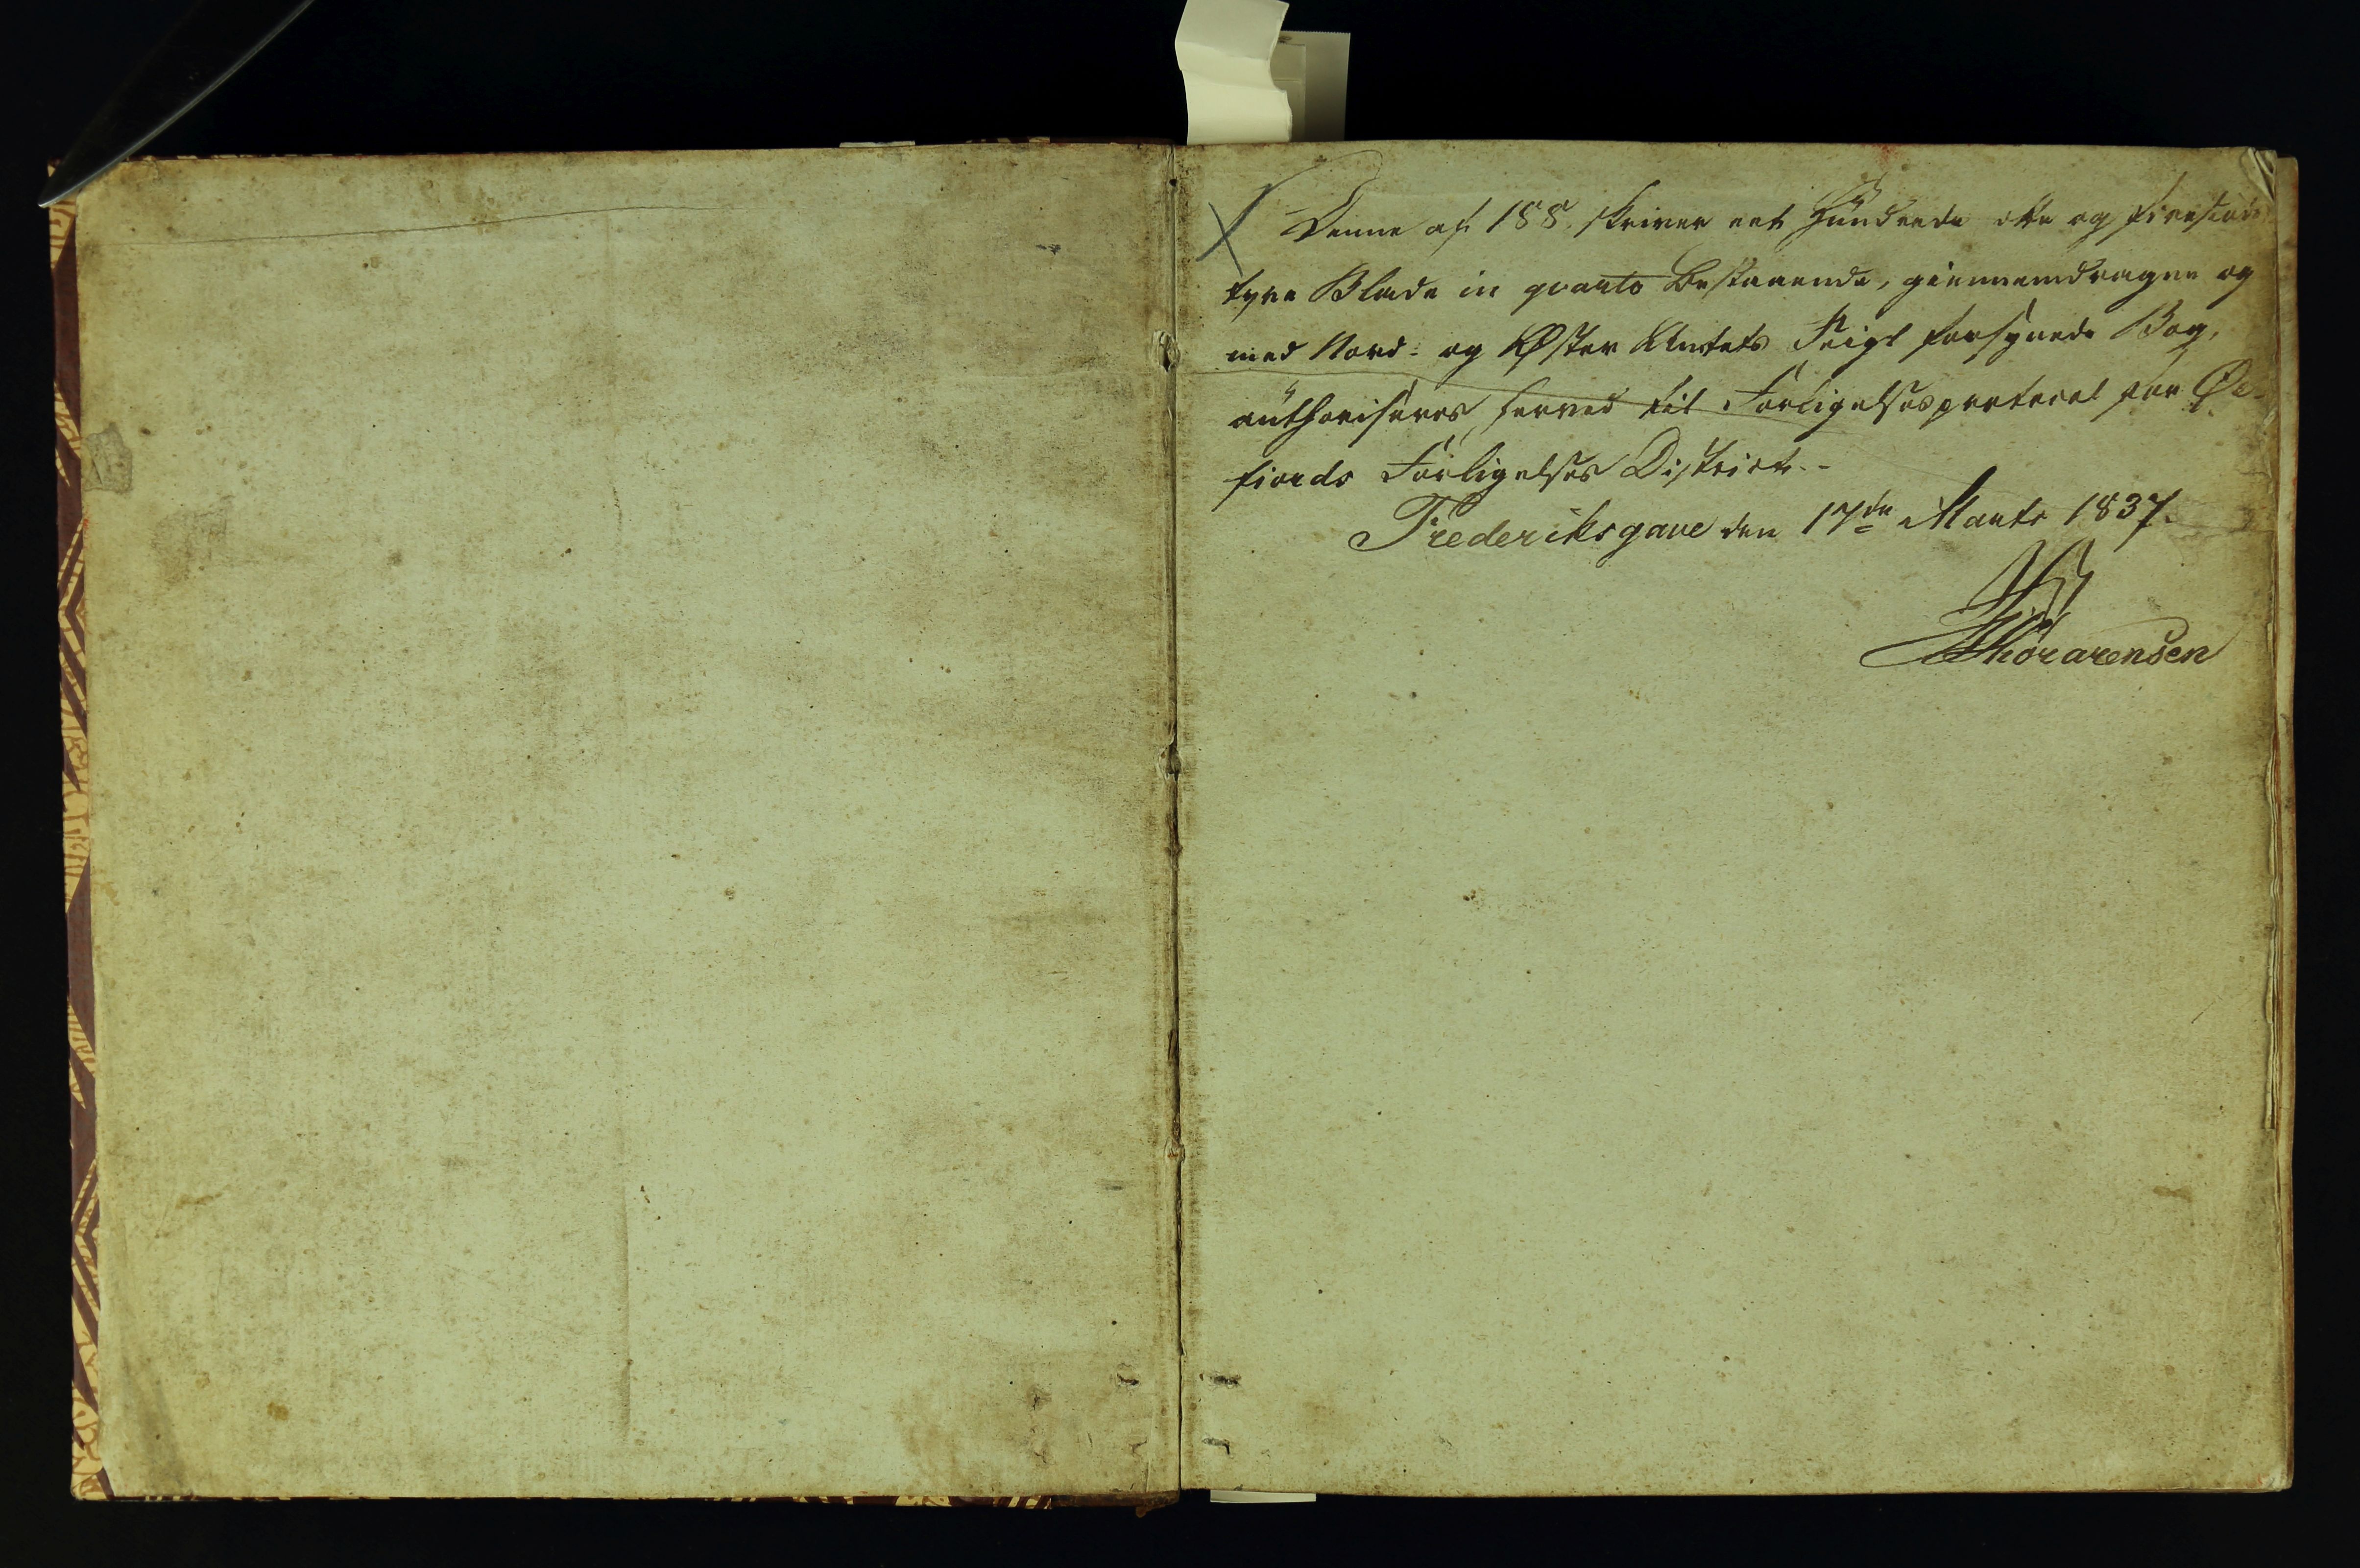 Denne af 188 skriver eet Hundrede otte og firesinds
tyve Blade in qvarto bestaaende, giennemdragne og
med Nord- og Øster Amtets Seigl forsynede Bog,
authoriseres herved til Forligelsesprotocol for Øe-
fiords Forligelses District.-
Frederiksgave den 17de Marts 1837.
Thorarensen